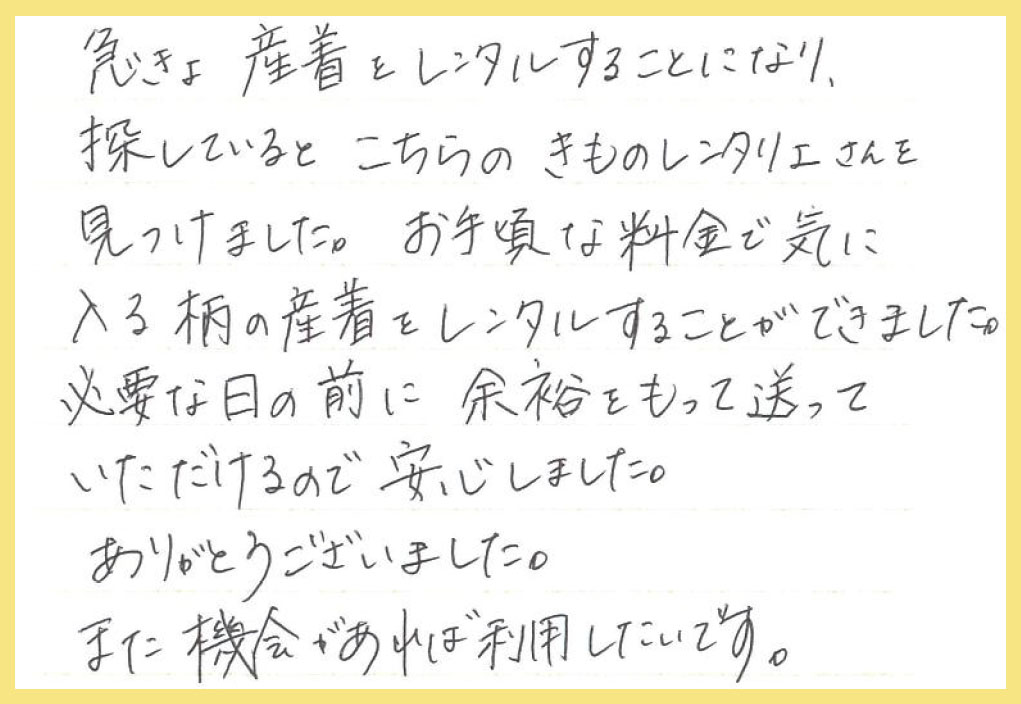 急きょ 産着をレンタルすることになり、
探していると こちらの きものレンタリエさんを
見つけました。 お手頃な料金で気に
入る柄の産着をレンタルすることができました。
必要な日の前に 余裕をもって送って
いただけるので安心しました。
ありがとうございました。
また機会があれば利用したいです。